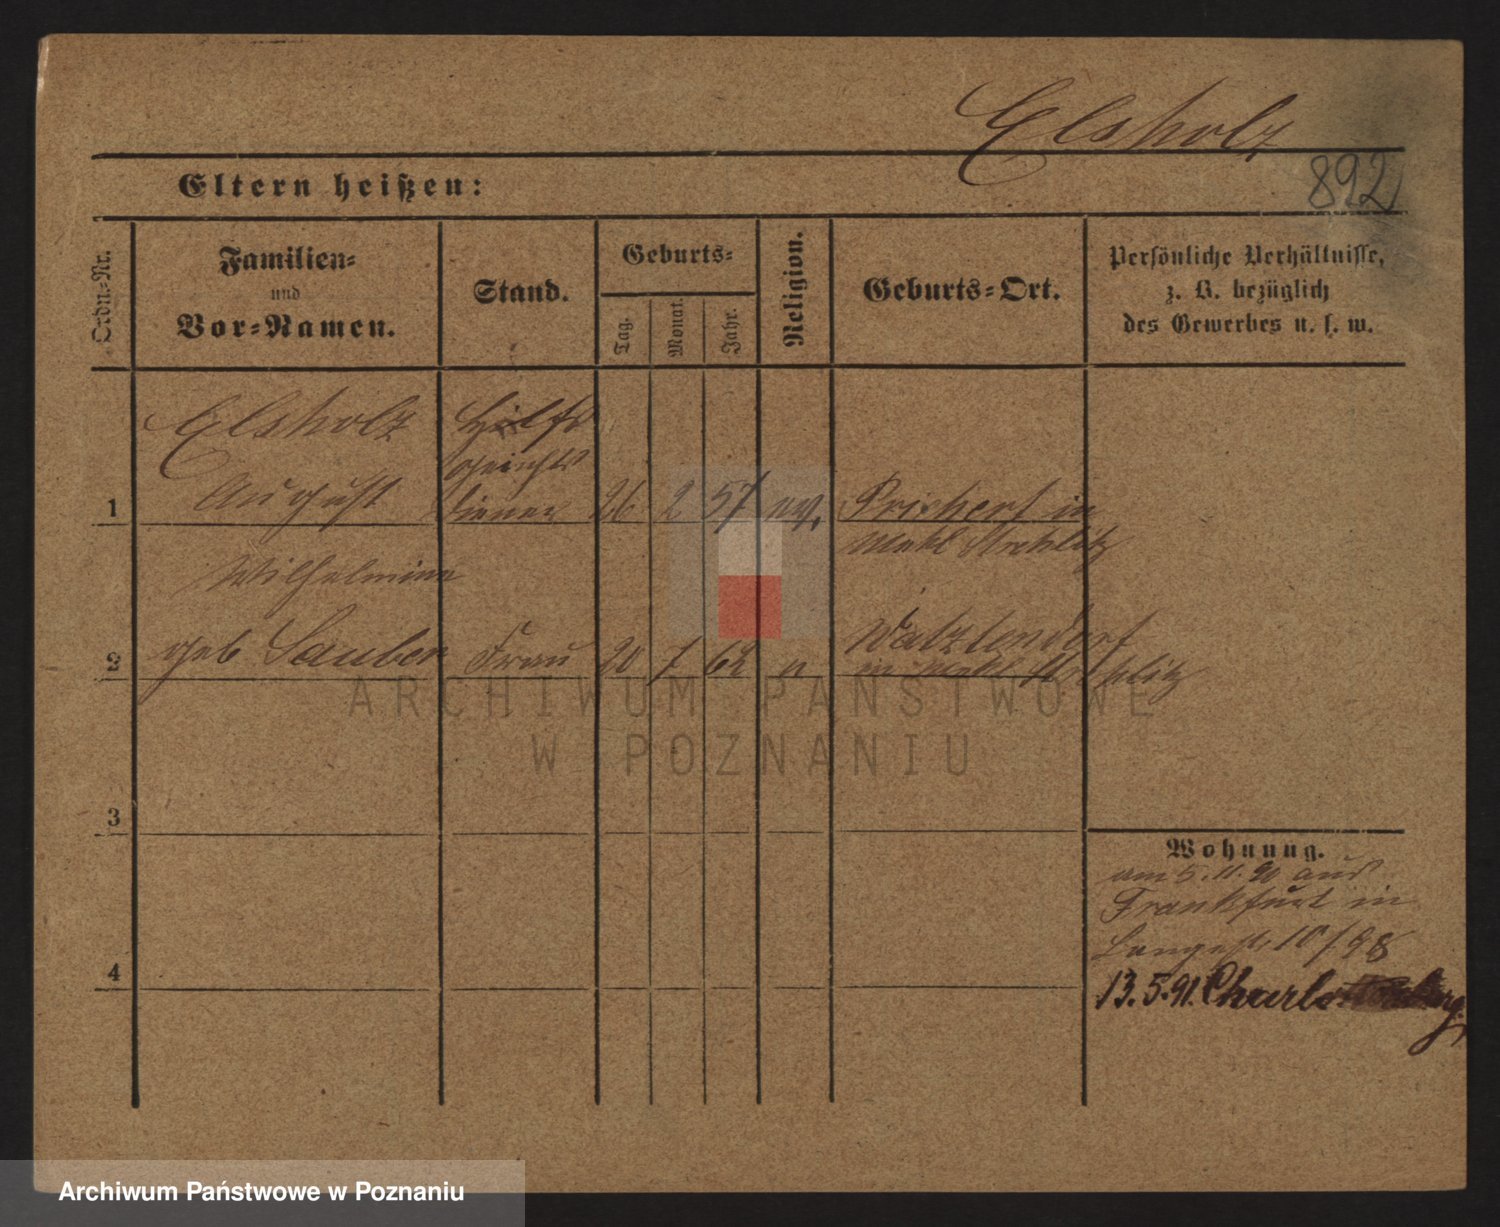 Elsholz
892
Eltern heißen:
Ordn.-Nr.
Familien-
und
Vor-Namen.
Stand.
Geburts-
Tag.
Monat.
Jahr.
Religion.
Geburts-Ort.
Persönliche Verhältnisse,
z. B. bezüglich
des Gewerbes u. s. w.
Elsholz Hilfs
gerichts
1 August diener 26 2 57 ev. in
Meckl Strelitz
Wilhelmine
2 geb Sauber Frau 20 7 62 "
in Meckl Strelitz
ARCHIWUM PAŃSTWOWE
W POZNANIU
3
Wohnung.
am 5.11.90 aus
Frankfurt in
Langestr 10
4
13.5.91. Charlottenburg
Archiwum Państwowe w Poznaniu